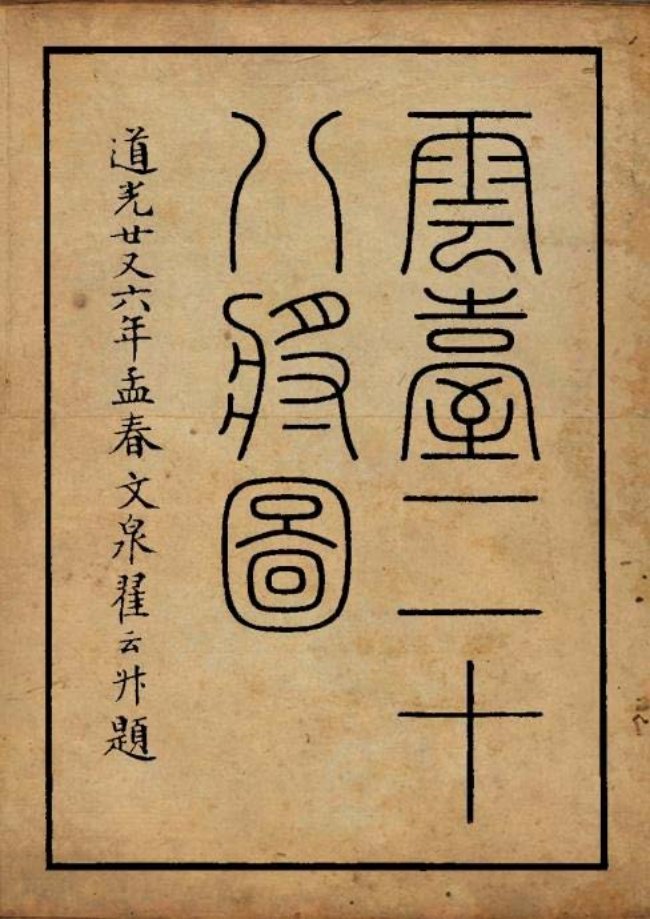 雲臺二十
八將圖
道光廿又六年孟春文泉翟云升題